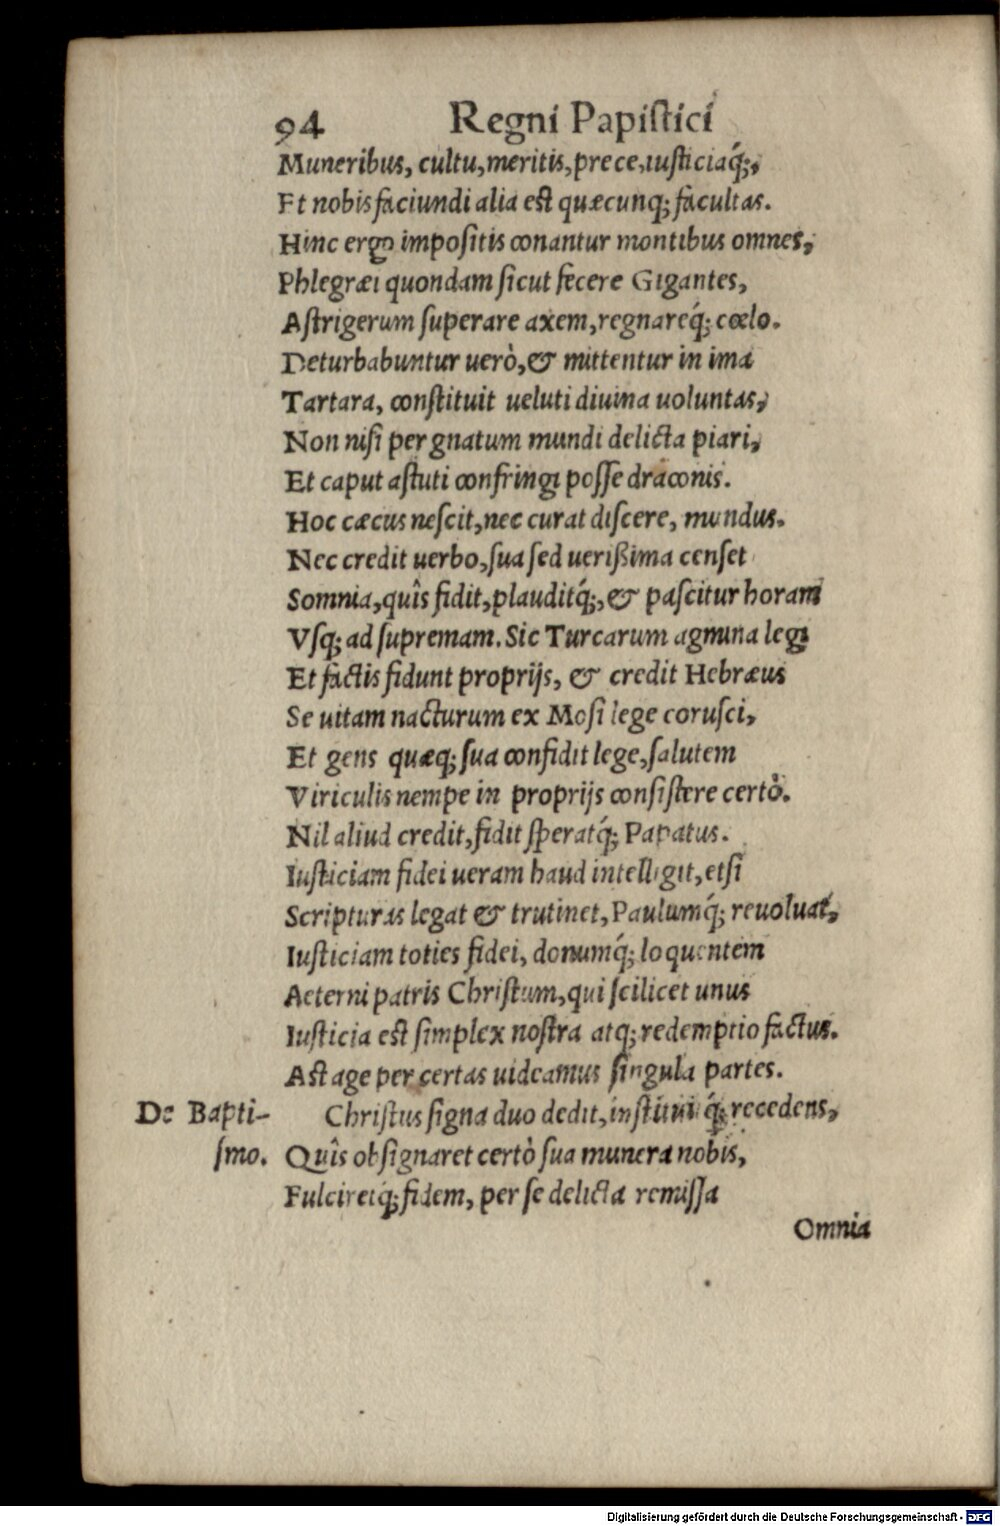 94 Regni Papiſtici
Muneribus, cultu, meritis, prece, iuſticiaq́;,
Et nobis faciundi alia eſt quæcunq; facultas.
Hinc ergo impoſitis conantur montibus omnes,
Phlegræi quondam ſicut fecere Gigantes,
Aſtrigerum ſuperare axem, regnareq́; cœlo.
Deturbabuntur uerò, & mittentur in ima
Tartara, conſtituit ueluti diuina uoluntas,
Non niſi per gnatum mundi delicta piari,
Et caput aſtuti confringi poſſe draconis.
Hoc cæcus neſcit, nec curat diſcere, mundus.
Nec credit uerbo, ſua ſed uerißima cenſet
Somnia, quîs fidit, plauditq́;, & paſcitur horam
Vſq; ad ſupremam. Sic Turcarum agmina legi
Et factis fidunt proprijs, & credit Hebræus
Se uitam nacturum ex Moſi lege coruſci,
Et gens quæq; ſua confidit lege, ſalutem
Viriculis nempe in proprijs conſiſtere certò.
Nil aliud credit, fidit ſperatq́; Papatus.
Iuſticiam fidei ueram haud intelligit, etſi
Scripturas legat & trutinet, Paulumq́; reuoluat,
Iuſticiam toties fidei, donumq́; loquentem
Aeterni patris Chriſtum, qui ſcilicet unus
Iuſticia eſt ſimplex noſtra atq; redemptio factus.
Aſt age per certas uideamus ſingula partes.
De Bapti- Chriſtus ſigna duo dedit, inſtituitq́; recedens,
ſmo. Quîs obſignaret certò ſua munera nobis,
Fulciretq́; fidem, per ſe delicta remiſſa
Omnia
Digitalisierung gefördert durch die Deutsche Forschungsgemeinschaft - DFG